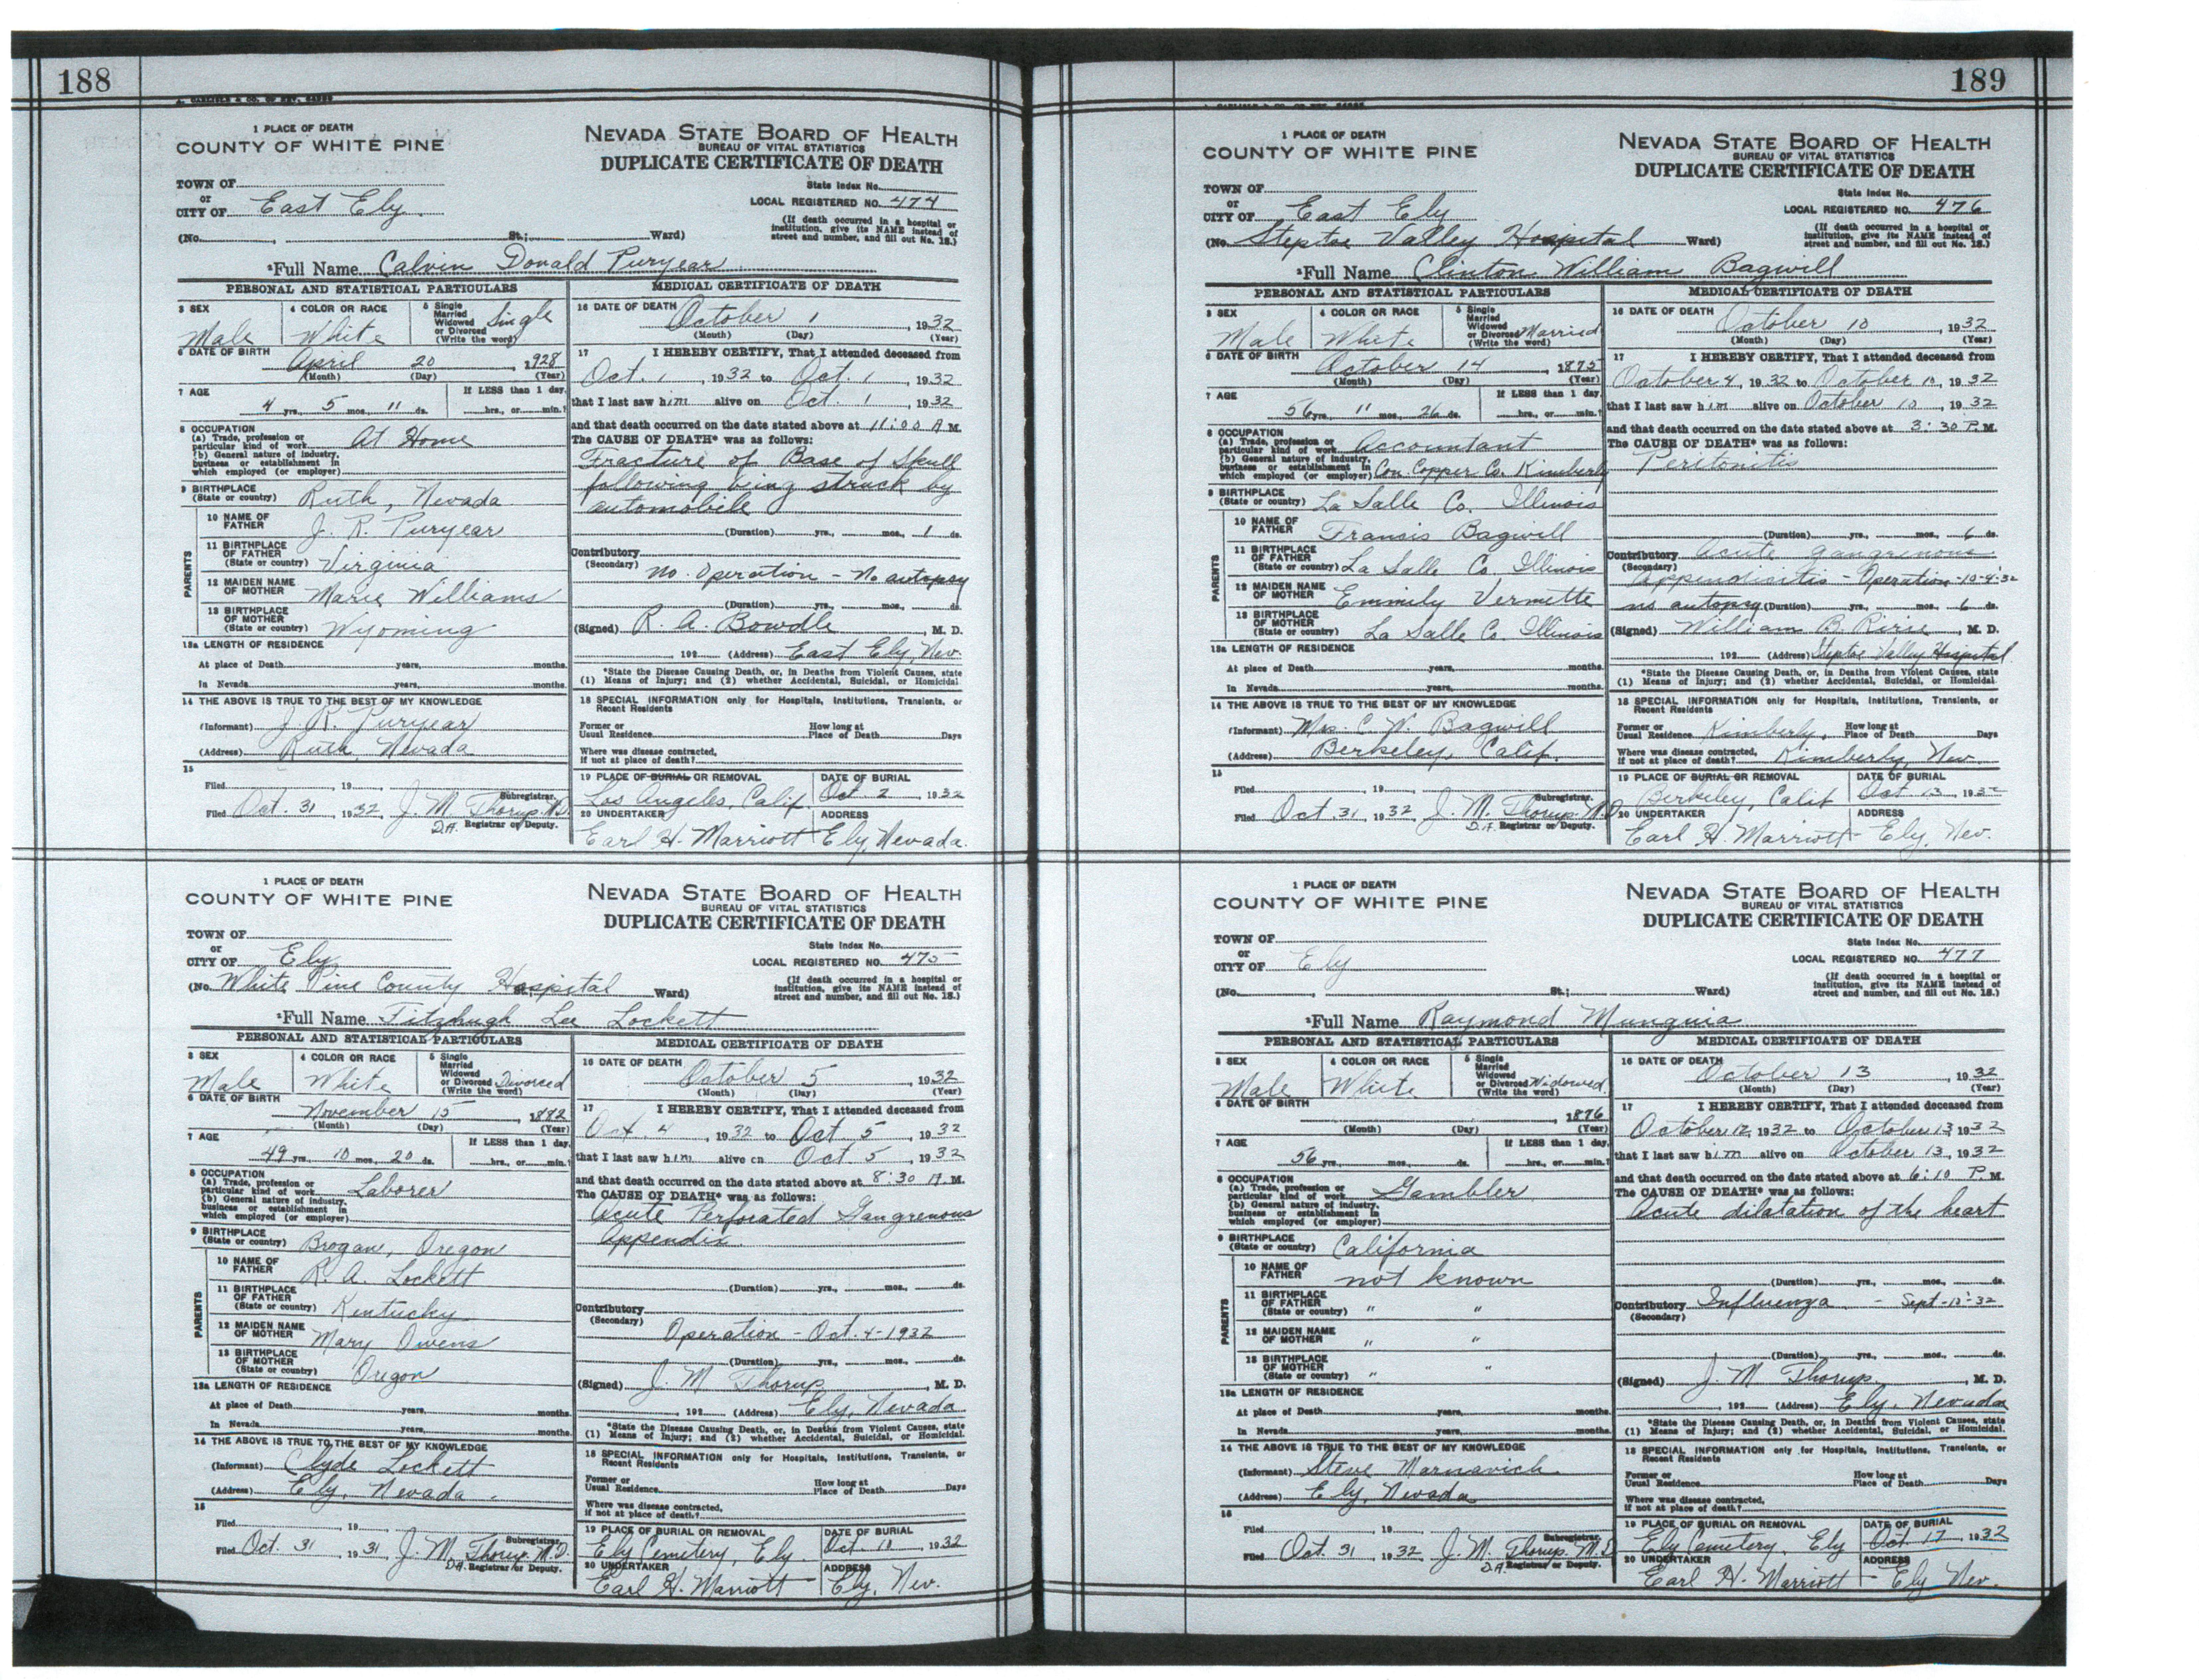 188
A. CARLISLE & CO. OF NEV.
1 PLACE OF DEATH
COUNTY OF WHITE PINE
NEVADA STATE BOARD OF HEALTH
BUREAU OF VITAL STATISTICS
DUPLICATE CERTIFICATE OF DEATH
TOWN OF
or
CITY OF East Ely
State Index No.
LOCAL REGISTERED NO. 474
(No. , St.; Ward)
(If death occurred in a hospital or institution, give its NAME instead of street and number, and fill out No. 18.)
2Full Name Calvin Donald Puryear
PERSONAL AND STATISTICAL PARTICULARS
3 SEX Male
4 COLOR OR RACE White
5 Single Married Widowed or Divorced (Write the word) Single
6 DATE OF BIRTH April 20, 1928
(Month) (Day) (Year)
7 AGE 4 yrs. 5 mos. 11 ds.
If LESS than 1 day, hrs., or min.?
8 OCCUPATION
(a) Trade, profession or particular kind of work At Home
(b) General nature of industry, business or establishment in which employed (or employer)
9 BIRTHPLACE (State or country) Ruth, Nevada
PARENTS
10 NAME OF FATHER J. R. Puryear
11 BIRTHPLACE OF FATHER (State or country) Virginia
12 MAIDEN NAME OF MOTHER Marie Williams
13 BIRTHPLACE OF MOTHER (State or country) Wyoming
13a LENGTH OF RESIDENCE
At place of Death years, months.
In Nevada years, months.
14 THE ABOVE IS TRUE TO THE BEST OF MY KNOWLEDGE
(Informant) J. R. Puryear
(Address) Ruth, Nevada
15
Filed , 19
Subregistrar.
Filed Oct. 31, 1932 J. M. Thorup M.D.
D.A. Registrar or Deputy.
MEDICAL CERTIFICATE OF DEATH
16 DATE OF DEATH October 1, 1932
(Month) (Day) (Year)
17 I HEREBY CERTIFY, That I attended deceased from
Oct. 1, 1932 to Oct. 1, 1932
that I last saw him alive on Oct. 1, 1932
and that death occurred on the date stated above at 11:00 A M.
The CAUSE OF DEATH* was as follows:
Fracture of Base of Skull
following being struck by
automobile
(Duration) yrs., mos., 1 ds.
Contributory
(Secondary) No Operation - No autopsy
(Duration) yrs., mos., ds.
(Signed) R. A. Bowdle, M. D.
, 192 (Address) East Ely, Nev.
*State the Disease Causing Death, or, in Deaths from Violent Causes, state (1) Means of Injury; and (2) whether Accidental, Suicidal, or Homicidal.
18 SPECIAL INFORMATION only for Hospitals, Institutions, Transients, or Recent Residents
Former or Usual Residence How long at Place of Death Days
Where was disease contracted, if not at place of death?
19 PLACE OF BURIAL OR REMOVAL Los Angeles, Calif.
DATE OF BURIAL Oct 2, 1932
20 UNDERTAKER Earl H. Marriott
ADDRESS Ely, Nevada.
1 PLACE OF DEATH
COUNTY OF WHITE PINE
NEVADA STATE BOARD OF HEALTH
BUREAU OF VITAL STATISTICS
DUPLICATE CERTIFICATE OF DEATH
TOWN OF
or
CITY OF Ely
State Index No.
LOCAL REGISTERED NO. 475
(No. White Pine County Hospital St.; Ward)
(If death occurred in a hospital or institution, give its NAME instead of street and number, and fill out No. 18.)
2Full Name Fitzhugh Lee Lockett
PERSONAL AND STATISTICAL PARTICULARS
3 SEX Male
4 COLOR OR RACE White
5 Single Married Widowed or Divorced (Write the word) Divorced
6 DATE OF BIRTH November 15, 1882
(Month) (Day) (Year)
7 AGE 49 yrs. 10 mos. 20 ds.
If LESS than 1 day, hrs., or min.?
8 OCCUPATION
(a) Trade, profession or particular kind of work Laborer
(b) General nature of industry, business or establishment in which employed (or employer)
9 BIRTHPLACE (State or country) Brogan, Oregon
PARENTS
10 NAME OF FATHER R. A. Lockett
11 BIRTHPLACE OF FATHER (State or country) Kentucky
12 MAIDEN NAME OF MOTHER Mary Owens
13 BIRTHPLACE OF MOTHER (State or country) Oregon
13a LENGTH OF RESIDENCE
At place of Death years, months.
In Nevada years, months.
14 THE ABOVE IS TRUE TO THE BEST OF MY KNOWLEDGE
(Informant) Clyde Lockett
(Address) Ely, Nevada.
15
Filed , 19
Subregistrar.
Filed Oct. 31, 1931 J. M. Thorup M.D.
D.A. Registrar or Deputy.
MEDICAL CERTIFICATE OF DEATH
16 DATE OF DEATH October 5, 1932
(Month) (Day) (Year)
17 I HEREBY CERTIFY, That I attended deceased from
Oct. 4, 1932 to Oct 5, 1932
that I last saw him alive on Oct. 5, 1932
and that death occurred on the date stated above at 8:30 A. M.
The CAUSE OF DEATH* was as follows:
Acute Perforated Gangrenous
Appendix.
(Duration) yrs., mos., ds.
Contributory
(Secondary) Operation - Oct. 4-1932
(Duration) yrs., mos., ds.
(Signed) J. M Thorup, M. D.
, 192 (Address) Ely, Nevada
*State the Disease Causing Death, or, in Deaths from Violent Causes, state (1) Means of Injury; and (2) whether Accidental, Suicidal, or Homicidal.
18 SPECIAL INFORMATION only for Hospitals, Institutions, Transients, or Recent Residents
Former or Usual Residence How long at Place of Death Days
Where was disease contracted, if not at place of death?
19 PLACE OF BURIAL OR REMOVAL Ely Cemetery, Ely
DATE OF BURIAL Oct. 10, 1932
20 UNDERTAKER Earl H. Marriott
ADDRESS Ely, Nev.
189
1 PLACE OF DEATH
COUNTY OF WHITE PINE
NEVADA STATE BOARD OF HEALTH
BUREAU OF VITAL STATISTICS
DUPLICATE CERTIFICATE OF DEATH
TOWN OF
or
CITY OF East Ely
State Index No.
LOCAL REGISTERED NO. 476
(No. Steptoe Valley Hospital Ward)
(If death occurred in a hospital or institution, give its NAME instead of street and number, and fill out No. 18.)
2Full Name Clinton William Bagwill
PERSONAL AND STATISTICAL PARTICULARS
3 SEX Male
4 COLOR OR RACE White
5 Single Married Widowed or Divorced (Write the word) Married
6 DATE OF BIRTH October 14, 1875
(Month) (Day) (Year)
7 AGE 56 yrs. 11 mos. 26 ds.
If LESS than 1 day, hrs., or min.?
8 OCCUPATION
(a) Trade, profession or particular kind of work Accountant
(b) General nature of industry, business or establishment in which employed (or employer) Con. Copper Co. Kimberly
9 BIRTHPLACE (State or country) La Salle Co. Illinois
PARENTS
10 NAME OF FATHER Fransis Bagwill
11 BIRTHPLACE OF FATHER (State or country) La Salle Co. Illinois
12 MAIDEN NAME OF MOTHER Emmily Vermette
13 BIRTHPLACE OF MOTHER (State or country) La Salle Co. Illinois
13a LENGTH OF RESIDENCE
At place of Death years, months.
In Nevada years, months.
14 THE ABOVE IS TRUE TO THE BEST OF MY KNOWLEDGE
(Informant) Mrs. C. W. Bagwill
(Address) Berkeley, Calif.
15
Filed , 19
Subregistrar.
Filed Oct. 31, 1932 J. M. Thorup M.D.
D.A. Registrar or Deputy.
MEDICAL CERTIFICATE OF DEATH
16 DATE OF DEATH October 10, 1932
(Month) (Day) (Year)
17 I HEREBY CERTIFY, That I attended deceased from
October 4, 1932 to October 10, 1932
that I last saw him alive on October 10, 1932
and that death occurred on the date stated above at 3:30 P. M.
The CAUSE OF DEATH* was as follows:
Peritonitis
(Duration) yrs., mos., 6 ds.
Contributory Acute gangrenous
(Secondary) Appendicitis - Operation-10-4-32
no autopsy (Duration) yrs., mos., 6 ds.
(Signed) William B. Ririe, M. D.
, 192 (Address) Steptoe Valley Hospital
*State the Disease Causing Death, or, in Deaths from Violent Causes, state (1) Means of Injury; and (2) whether Accidental, Suicidal, or Homicidal.
18 SPECIAL INFORMATION only for Hospitals, Institutions, Transients, or Recent Residents
Former or Usual Residence Kimberly, How long at Place of Death Days
Where was disease contracted, if not at place of death? Kimberly, Nev.
19 PLACE OF BURIAL OR REMOVAL Berkeley, Calif
DATE OF BURIAL Oct 13, 1932
20 UNDERTAKER Earl H. Marriott
ADDRESS Ely, Nev.
1 PLACE OF DEATH
COUNTY OF WHITE PINE
NEVADA STATE BOARD OF HEALTH
BUREAU OF VITAL STATISTICS
DUPLICATE CERTIFICATE OF DEATH
TOWN OF
or
CITY OF Ely
State Index No.
LOCAL REGISTERED NO. 477
(No. , St.; Ward)
(If death occurred in a hospital or institution, give its NAME instead of street and number, and fill out No. 18.)
2Full Name Raymond Munguia
PERSONAL AND STATISTICAL PARTICULARS
3 SEX Male
4 COLOR OR RACE White
5 Single Married Widowed or Divorced (Write the word) Widowed
6 DATE OF BIRTH , 1876
(Month) (Day) (Year)
7 AGE 56 yrs. mos. ds.
If LESS than 1 day, hrs., or min.?
8 OCCUPATION
(a) Trade, profession or particular kind of work Gambler
(b) General nature of industry, business or establishment in which employed (or employer)
9 BIRTHPLACE (State or country) California
PARENTS
10 NAME OF FATHER not known
11 BIRTHPLACE OF FATHER (State or country) " "
12 MAIDEN NAME OF MOTHER " "
13 BIRTHPLACE OF MOTHER (State or country) " "
13a LENGTH OF RESIDENCE
At place of Death years, months.
In Nevada years, months.
14 THE ABOVE IS TRUE TO THE BEST OF MY KNOWLEDGE
(Informant) Steve Marnavich
(Address) Ely, Nevada
15
Filed , 19
Subregistrar.
Filed Oct. 31, 1932 J. M. Thorup M.D.
D.A. Registrar or Deputy.
MEDICAL CERTIFICATE OF DEATH
16 DATE OF DEATH October 13, 1932
(Month) (Day) (Year)
17 I HEREBY CERTIFY, That I attended deceased from
October 12, 1932 to October 13, 1932
that I last saw him alive on October 13, 1932
and that death occurred on the date stated above at 6:10 P. M.
The CAUSE OF DEATH* was as follows:
Acute dilatation of the heart
(Duration) yrs., mos., ds.
Contributory Influenza - Sept-10-32
(Secondary)
(Duration) yrs., mos., ds.
(Signed) J. M Thorup, M. D.
, 192 (Address) Ely, Nevada
*State the Disease Causing Death, or, in Deaths from Violent Causes, state (1) Means of Injury; and (2) whether Accidental, Suicidal, or Homicidal.
18 SPECIAL INFORMATION only for Hospitals, Institutions, Transients, or Recent Residents
Former or Usual Residence How long at Place of Death Days
Where was disease contracted, if not at place of death?
19 PLACE OF BURIAL OR REMOVAL Ely Cemetery, Ely
DATE OF BURIAL Oct. 17, 1932
20 UNDERTAKER Earl H. Marriott
ADDRESS Ely Nev.